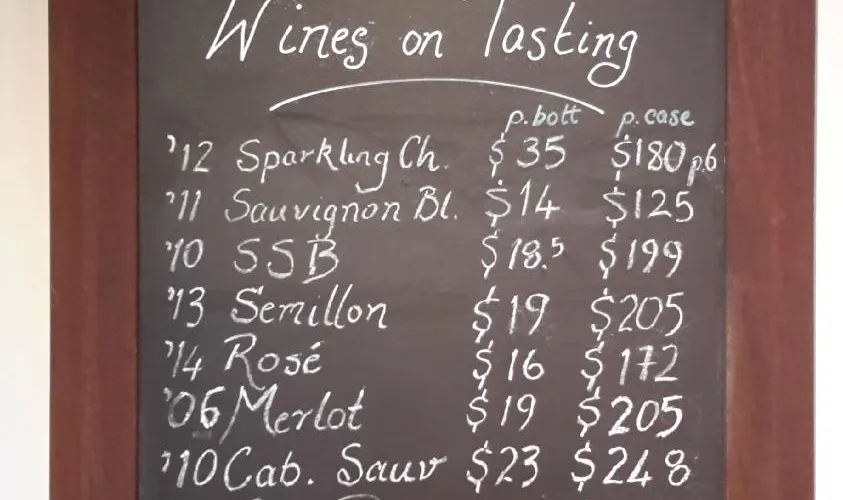 Wines on Tasting
p.bott p.case
'12 Sparkling Ch. $35 $180 p.6
'11 Sauvignon Bl. $14 $125
'10 SSB $18.5 $199
'13 Semillon $19 $205
'14 Rosé $16 $172
'06 Merlot $19 $205
'10 Cab. Sauv $23 $248